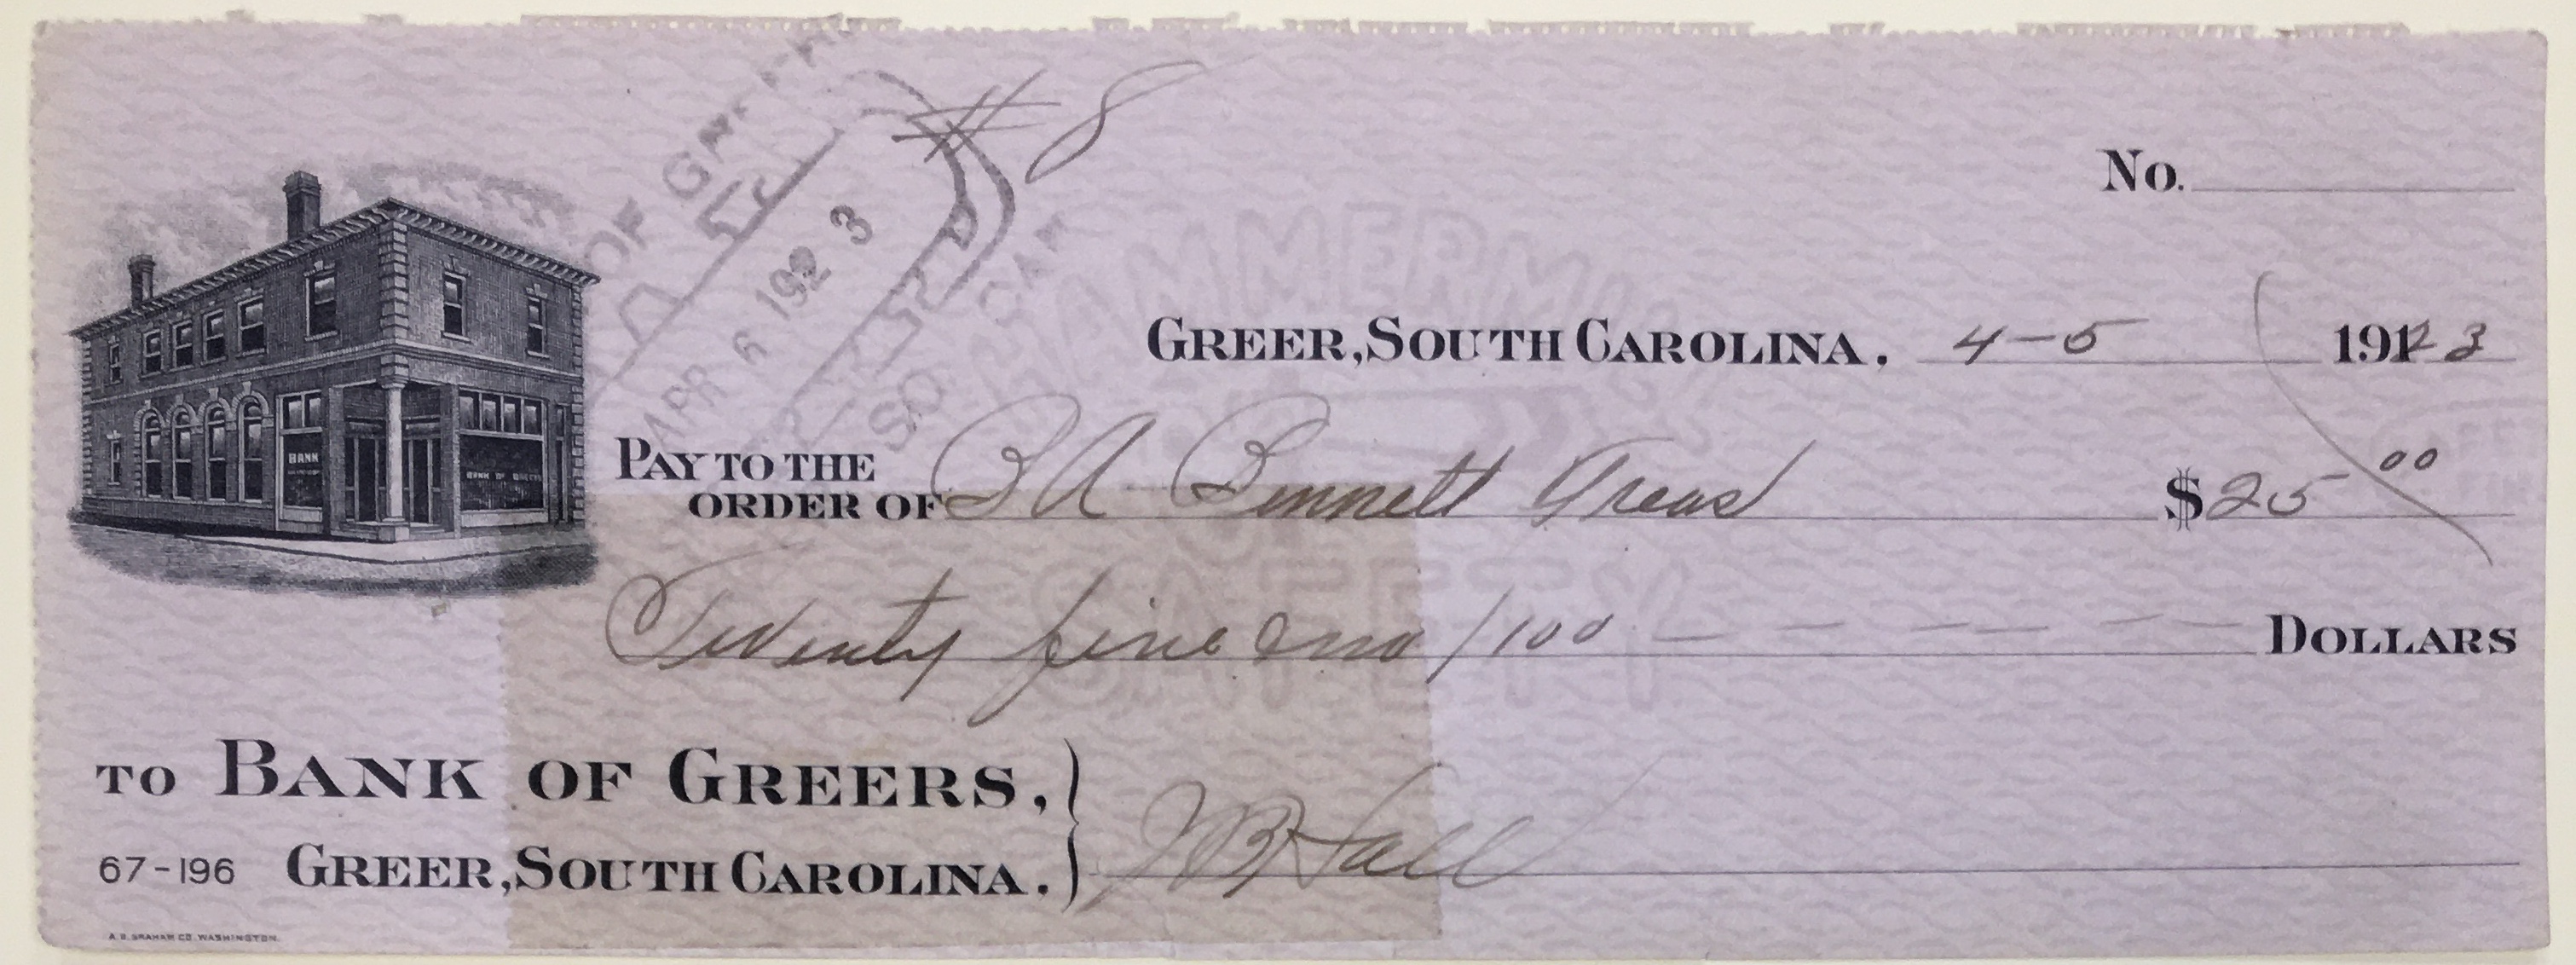 # 8
No.
OF
APR 6 1923
SO. CAR
HAMMERMILL
SAFETY
GREER, SOUTH CAROLINA, 4-5 1923
PAY TO THE
ORDER OF B A Bennett Treas $25 00
Twenty five & no/100 DOLLARS
BANK
BANK OF GREERS
TO BANK OF GREERS,
67-196 GREER, SOUTH CAROLINA.
J B Hall
A. B. GRAHAM CO. WASHINGTON.